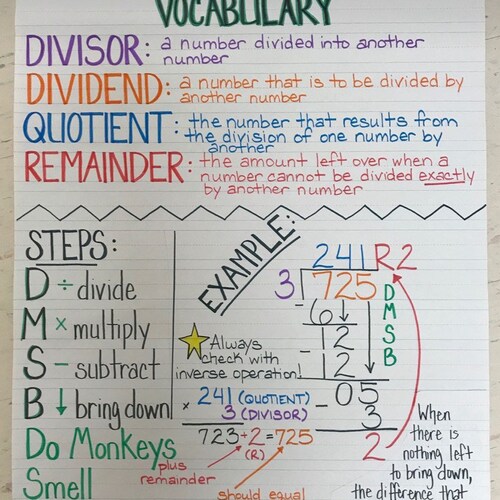 VOCABULARY
DIVISOR: a number divided into another
number
DIVIDEND: a number that is to be divided by
another number
QUOTIENT: the number that results from
the division of one number by
another
REMAINDER: the amount left over when a
number cannot be divided exactly
by another number
STEPS:
D ÷ divide
M × multiply
S - subtract
B ↓ bring down
Do Monkeys
Smell
EXAMPLE:
241 R2
3 725
- 6↓
12
- 12
05
- 3
2
D
M
S
B
Always
check with
inverse operation!
241 (QUOTIENT)
× 3 (DIVISOR)
723+2=725
(R)
plus
remainder
should equal
When
there is
nothing left
to bring down,
the difference that